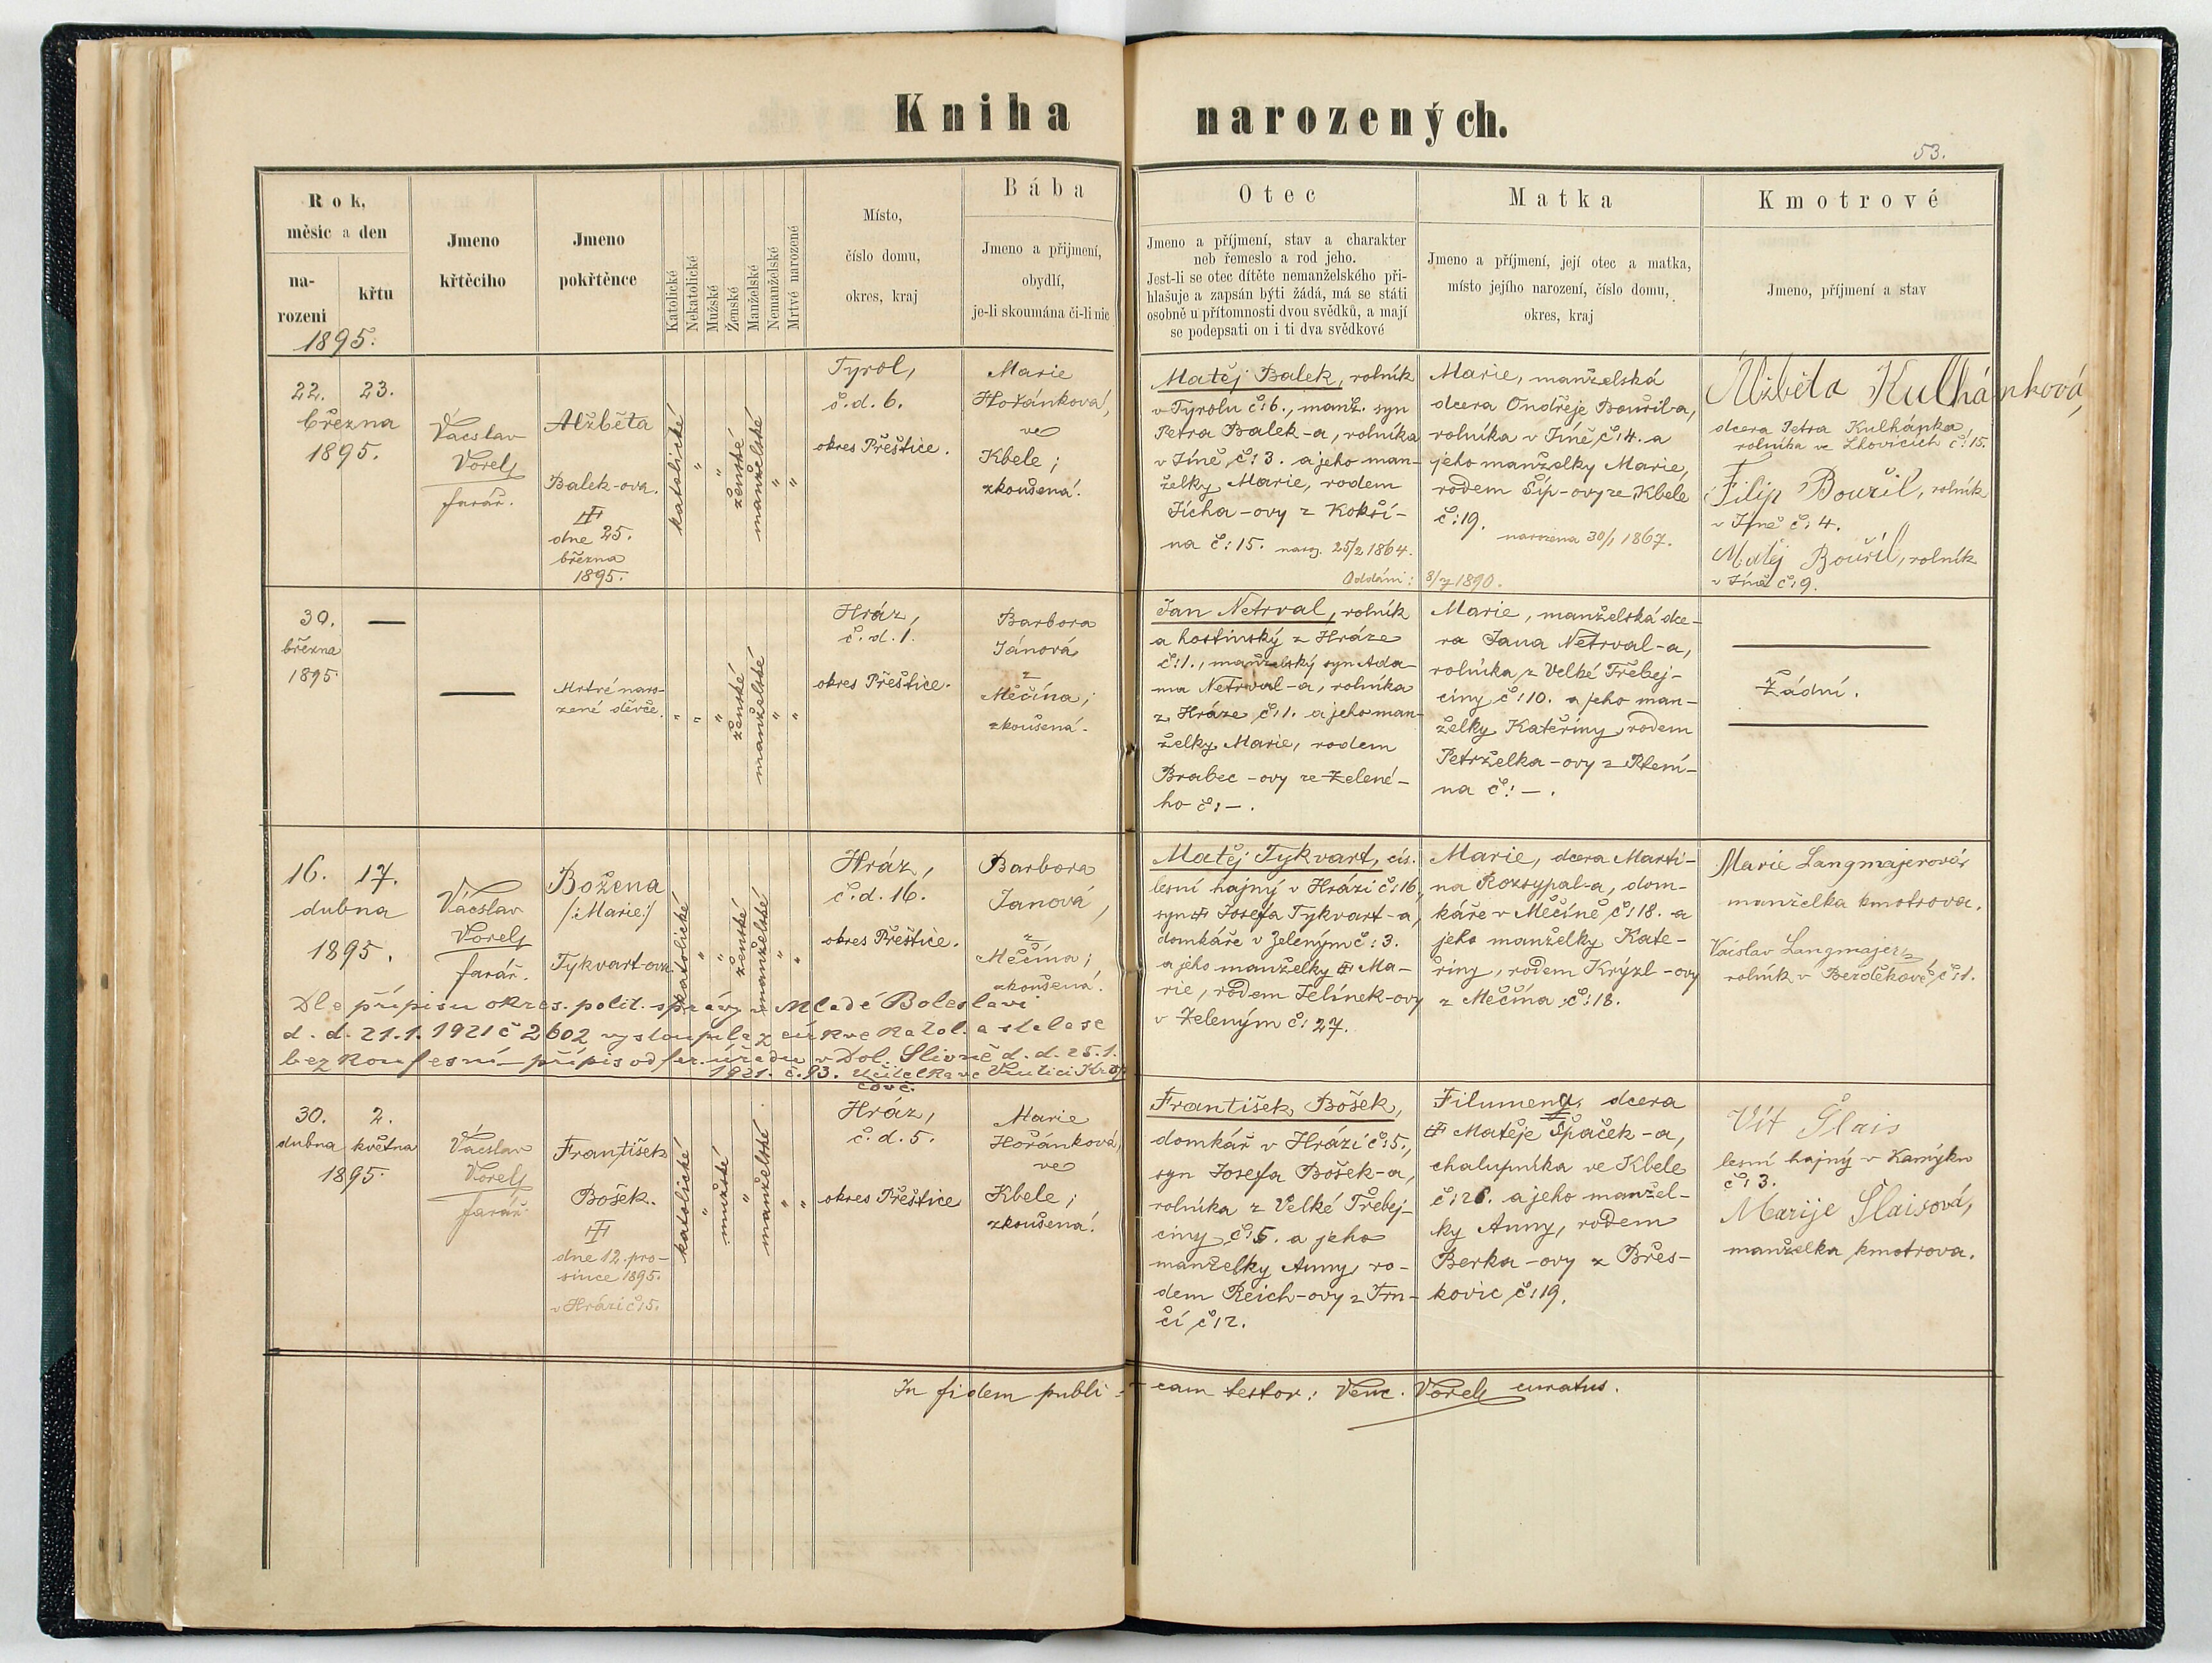 Kniha narozených.
53.
Rok, měsíc a den
na-
rozeni
křtu
1895.
Jmeno
křtěcího
Jmeno
pokřtěnce
Katolické
Nekatolické
Mužské
Ženské
Manželské
Nemanželské
Mrtvé narozené
Místo,
číslo domu,
okres, kraj
Bába
Jmeno a přijmení,
obydlí,
je-li skoumána či-li nic
Otec
Jmeno a příjmení, stav a charakter
neb řemeslo a rod jeho.
Jest-li se otec dítěte nemanželského při-
hlašuje a zapsán býti žádá, má se státi
osobně u přítomnosti dvou svědků, a mají
se podepsati on i ti dva svědkové
Matka
Jmeno a příjmení, její otec a matka,
místo jejího narození, číslo domu,
okres, kraj
Kmotrové
Jmeno, příjmení a stav
22. 23.
března
1895.
Vácslav
Vorel,
farář.
Alžběta
Balek-ova.
dne 25.
března
1895.
katolické
"
"
ženské
manželské
"
"
Tyrol,
č. d. 6.
okres Přeštice.
Marie
Hořánková,
ve
Kbele;
zkoušená.
Matěj Balek, rolník
v Tyrolu č: 6., manž. syn
Petra Balek-a, rolníka
v Jíně, č: 3. a jeho man-
želky Marie, rodem
Jícha-ovy z Kokří-
na č: 15. naroz. 25/2 1864.
Oddáni: 8/7 1890.
Marie, manželská
dcera Ondřeje Bouřil-a,
rolníka v Jíně č: 4. a
jeho manželky Marie,
rodem Šíp-ovy ze Kbele
č: 19.
narozena 30/1 1867.
Alžběta Kulhánková,
dcera Petra Kulhánka,
rolníka ve Lhovicích č: 15.
Filip Bouřil, rolník
v Jíně č: 4.
Matěj Bouřil, rolník
v Jíně č: 9.
30. —
března
1895.
—
Mrtvé naro-
zené děvče.
"
"
"
ženské
manželské
"
"
Hráz,
č. d. 1.
okres Přeštice.
Barbora
Jánová
z
Měčína;
zkoušená.
Jan Netrval, rolník
a hostinský z Hráze
č: 1., manželský syn Ada-
ma Netrval-a, rolníka
z Hráze č: 1. a jeho man-
želky Marie, rodem
Brabec-ovy ze Zelené-
ho č: —.
Marie, manželská dce-
ra Jana Netrval-a,
rolníka z Velké Třebej-
činy č: 10. a jeho man-
želky Kateřiny, rodem
Petrželka-ovy z Ptení-
na č: —.
Žádní.
16. 17.
dubna
1895.
Vácslav
Vorel,
farář.
Božena
/:Marie:/
Tykvart-ova
katolické
"
"
ženské
manželské
"
"
Hráz,
č. d. 16.
okres Přeštice.
Barbora
Janová,
z
Měčína;
zkoušená.
Matěj Tykvart, cís.
lesní hajný v Hrázi č: 16.,
syn Josefa Tykvart-a,
domkáře v Zeleným č: 3.
a jeho manželky Ma-
rie, rodem Jelínek-ovy
v Zeleným č: 27.
Marie, dcera Marti-
na Rozsypal-a, dom-
káře v Měčíně č: 18. a
jeho manželky Kate-
řiny, rodem Krýzl-ovy
z Měčína č: 18.
Marie Langmajerová,
manželka kmotrova.
Václav Langmajer,
rolník v Berděkově č: 1.
Dle přípisu okres. polit. správy v Mladé Boleslavi
d. d. 21.1.1921 č 2602 vystoupila z církve katol. a stala se
bez konfesní – přípis od far. úřadu v Dol. Slivně d. d. 25.1.
1921. č. 93. učitelka ve
30. 2.
dubna května
1895.
Vácslav
Vorel,
farář.
František
Bošek.
dne 12. pro-
since 1895.
v Hrázi č: 5.
katolické
"
mužské
"
manželské
"
"
Hráz,
č. d. 5.
okres Přeštice
Marie
Hořánková,
ve
Kbele;
zkoušená.
František Bošek,
domkář v Hrázi č: 5.,
syn Josefa Bošek-a,
rolníka z Velké Třebej-
činy č: 5. a jeho
manželky Anny, ro-
dem Reich-ovy z Trn-
čí č: 2.
Filumena, dcera
Matěje Špaček-a,
chalupníka ve Kbele
č: 26. a jeho manžel-
ky Anny, rodem
Berka-ovy z Břes-
kovic č: 19.
Vít Šlais
lesní hajný v Kamýku
č: 3.
Marije Šlaisová,
manželka kmotrova.
In fidem publi-cam testor: Venc. Vorel, curatus.